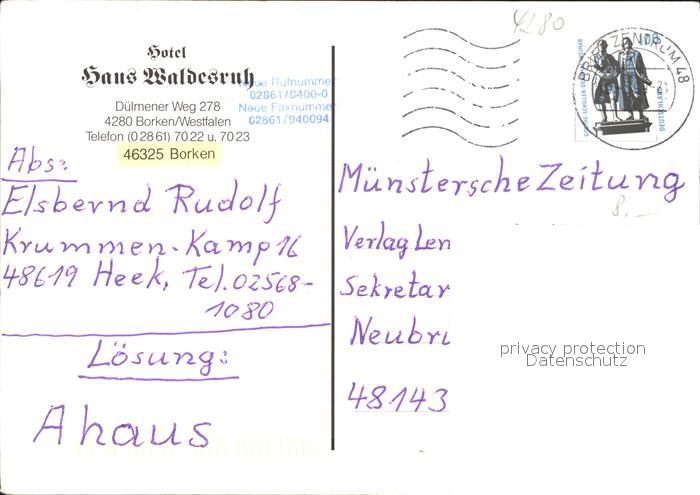 Hotel
Haus Waldesruh
Neue Rufnummer
02861/9400-0
Neue Faxnummer
02861/940094
Dülmener Weg 278
4280 Borken/Westfalen
Telefon (0 28 61) 70 22 u. 70 23
46325 Borken
Abs:
Elsbernd Rudolf
Krummen-Kamp 16
48619 Heek, Tel. 02568-
1080
Lösung:
Ahaus
4280
BRIEFZENTRUM 48
100
DEUTSCHLAND
Münstersche Zeitung
8,—
Verlag Len
Sekretar
Neubru
48143
privacy protection
Datenschutz